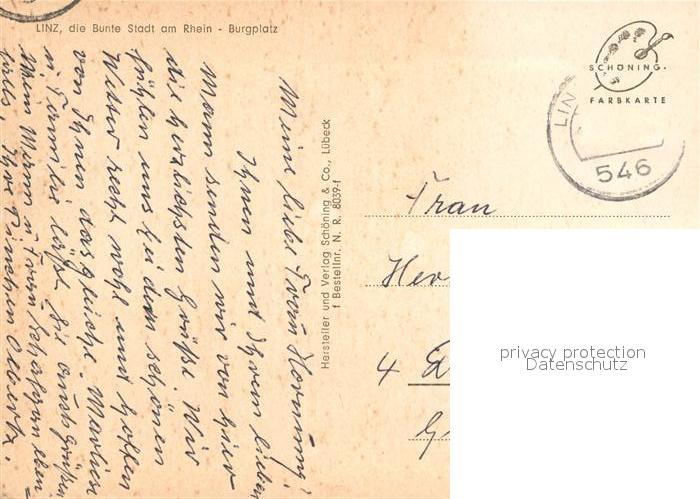 LINZ, die Bunte Stadt am Rhein - Burgplatz
SCHÖNING·
FARBKARTE
LIN
546
Meine liebe Frau Hornung!
Ihnen und Ihrem lieben
Mann senden wir von hier
die herzlichsten Grüße. Wir
fühlen uns bei dem schönen
Wetter recht wohl und hoffen
von Ihnen dasgleiche.
u. Familie läßt Sie auch grüßen
Mein Mann u. Frau eben-
falls. Ihre
Hersteller und Verlag Schöning & Co., Lübeck
f Bestellnr. N. R. 8039-f
Frau
Her
4
privacy protection
Datenschutz